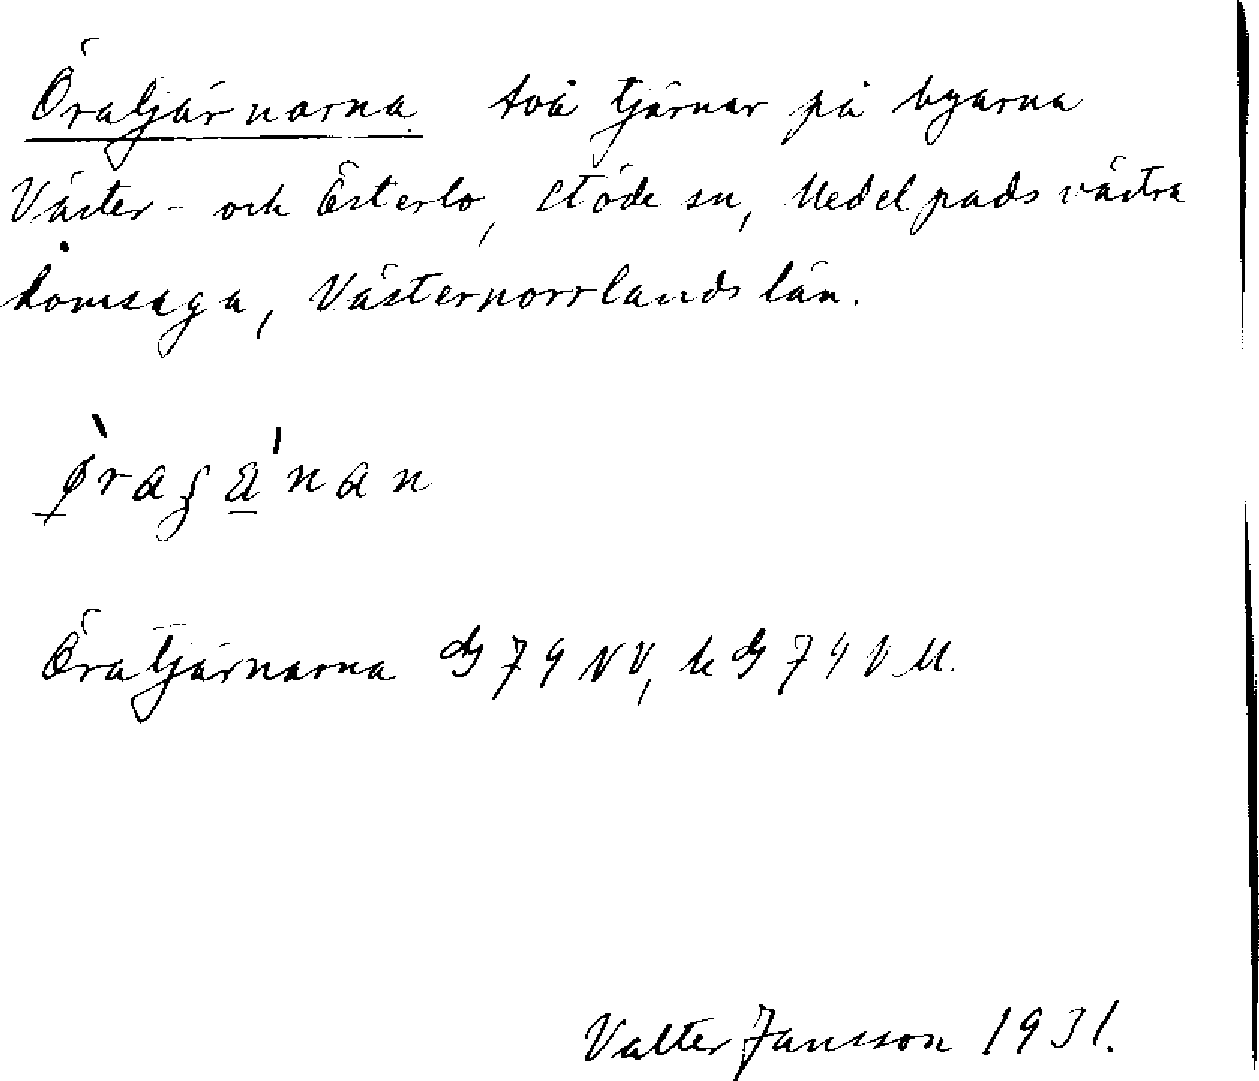 Öratjärnarna två tjärnar på byarna
Väster- och Österlo, Stöde sn, Medelpads västra
domsaga, Västernorrlands län.
Öratjärnarna G 79 NV,
Valter Jansson 1931.